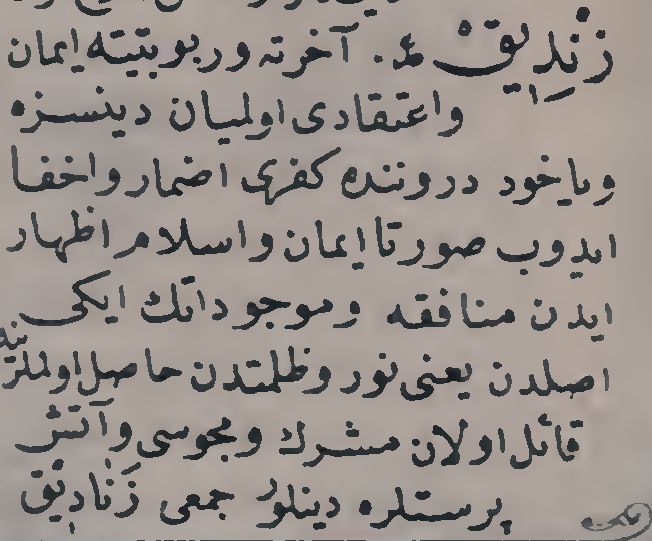 زِنْدِيقْ ع. آخرته و ربوبيتيته ايمان
واعتقادى اولميان دينسزه
وياخود دروننده كفرى اضمار واخفا
ايدوب صورتا ايمان واسلام اظهار
ايدن منافقه وموجوداتك ايكى
اصلدن يعنى نور وظلمتدن حاصل اولملرينه
قائل اولان مشرك ومجوسى وآتش
پرستلره دينلور جمعى زَنَادِيق